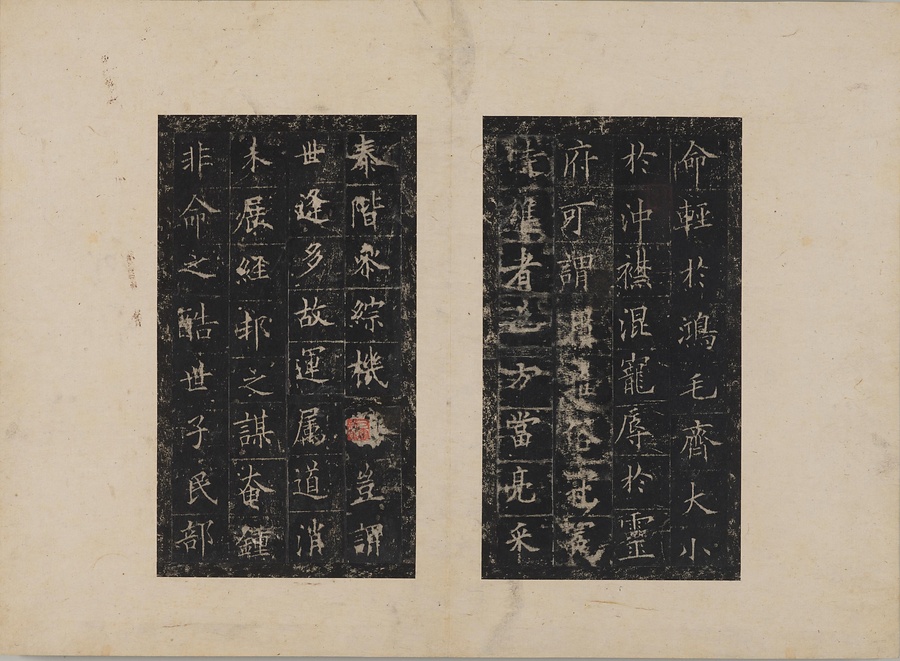 命輕於鴻毛齊大小
於沖襟混寵辱於靈
府可謂
者也方當亮采
泰階參綜機豈謂
世逢多故運属道消
未展経邦之謀奄鍾
非命之酷世子民部